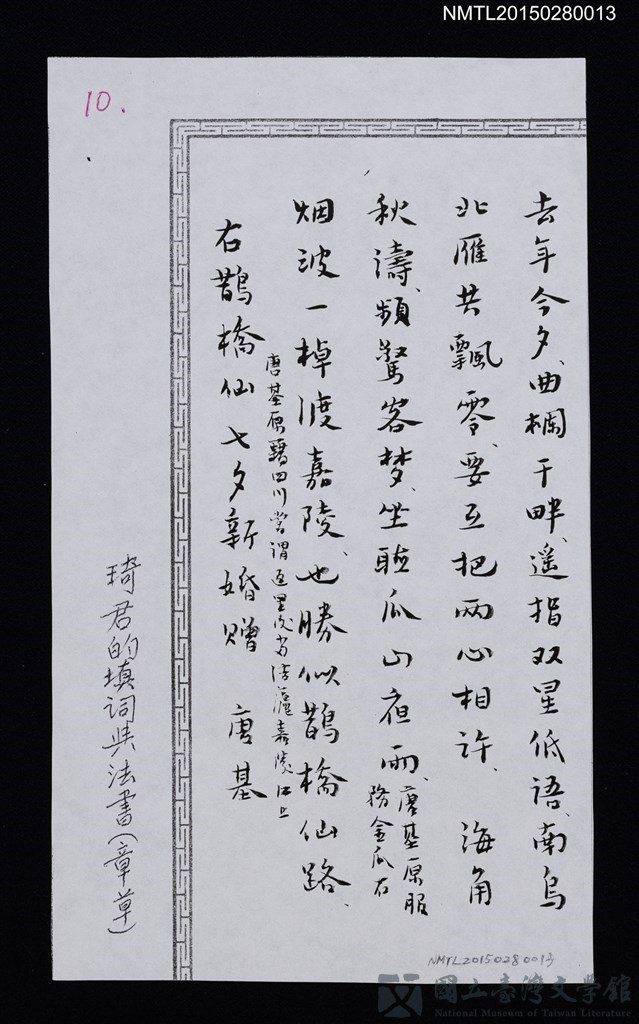 NMTL20150280013
10.
去年今夕、曲欄干畔、遙指双星低語、南烏
北雁共飄零、要互把兩心相許、 海角
秋濤、頻驚客夢、坐聽瓜山夜雨、
唐基原服
務金瓜石
烟波一棹渡嘉陵、也勝似鵲橋仙路、
唐基原籍四川嘗謂返里後當結廬嘉陵江上
右鵲橋仙七夕新婚贈 唐基
琦君的填詞與法書(章草)
NMTL20150280013
國立臺灣文學館
National Museum of Taiwan Literature